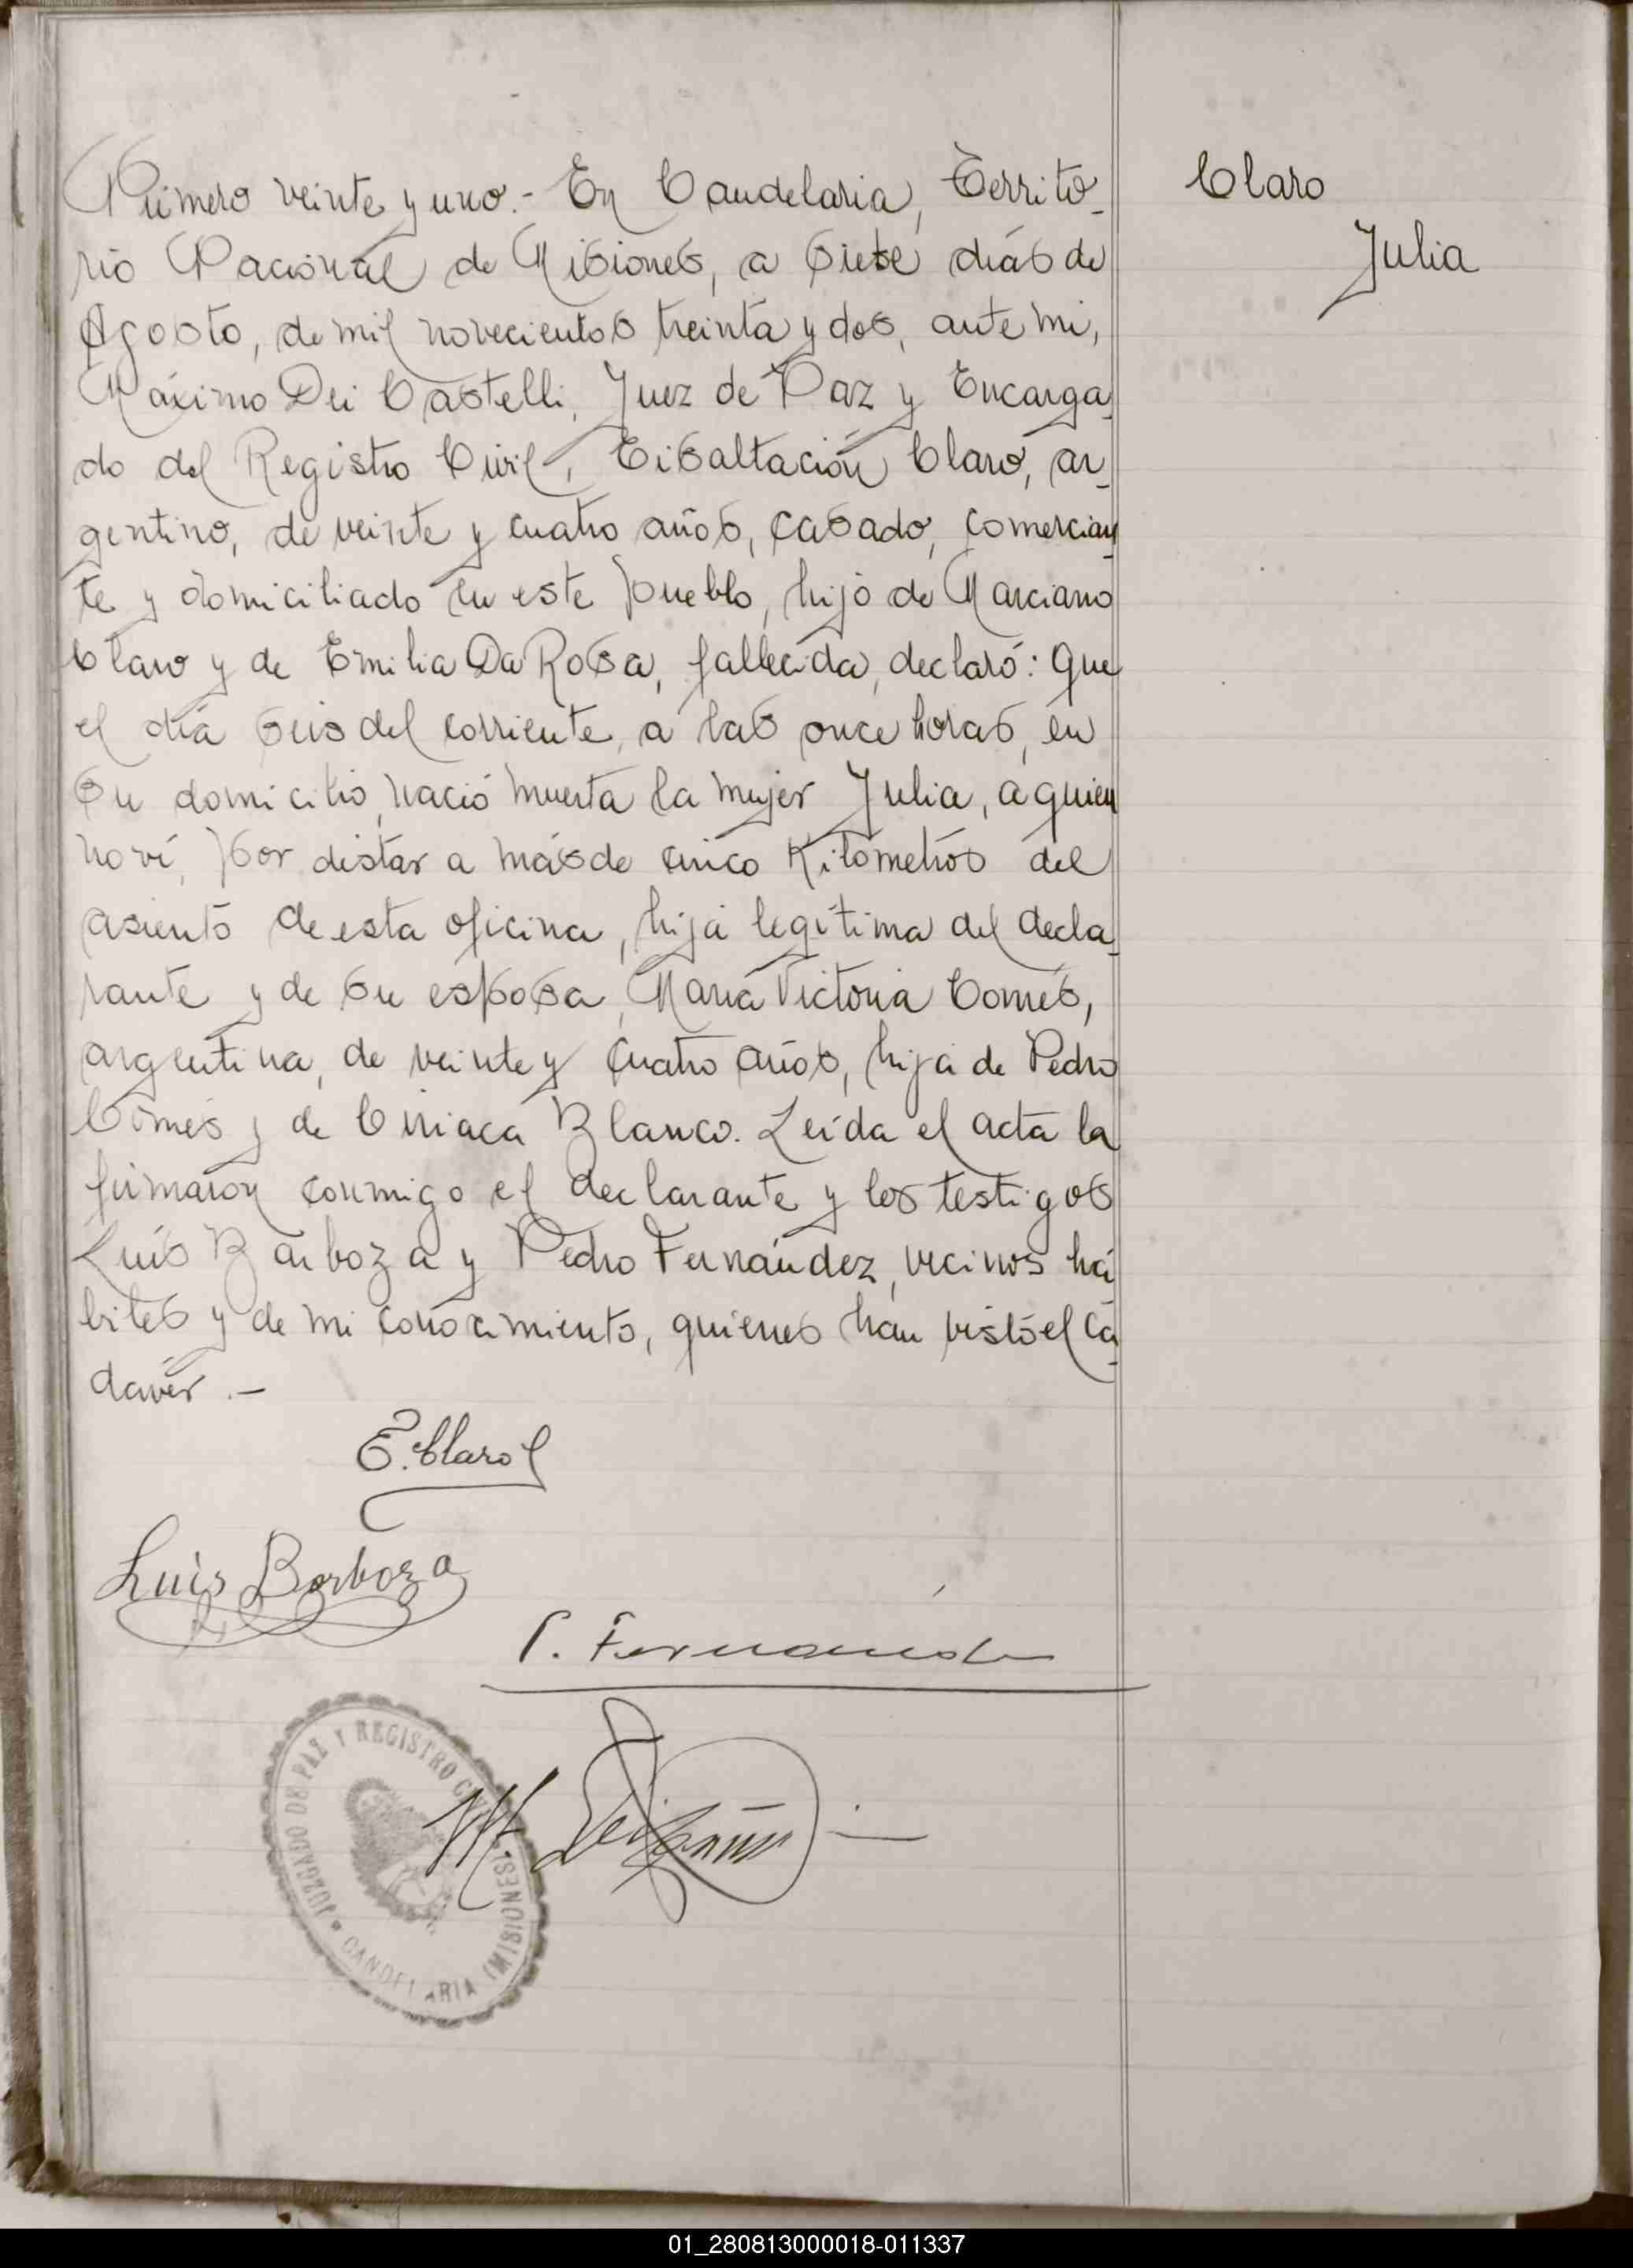 Número veinte y uno.- En Candelaria, Territo-
rio Nacional de Misiones, a siete días de
Agosto, de mil novecientos treinta y dos, ante mi,
Máximo Dei Castelli, Juez de Paz y Encarga-
do del Registro Civil, Eisaltación Claro, ar-
gentino, de veinte y cuatro años, casado, comercian-
te y domiciliado en este pueblo, hijo de Marciano
Claro y de Emilia Da Rosa, fallecida, declaró: Que
el día seis del corriente, a las once horas, en
su domicilio, nació muerta la mujer Julia, a quien
no ví, por distar a más de cinco Kilómetros del
asiento de esta oficina, hija legítima del decla-
rante y de su esposa, María Victoria Comes,
argentina, de veinte y cuatro años, hija de Pedro
Comes y de Ciriaca Blanco. Leída el acta la
firmaron conmigo el declarante y los testigos
Luis Barboza y Pedro Fernández, vecinos há-
biles y de mi conocimiento, quienes han visto el ca-
daver.-
Claro
Julia
E. Claro
Luis Borboza
P. Fernandez
JUZGADO DE PAZ Y REGISTRO CIVIL
CANDELARIA (MISIONES)
01_280813000018-011337